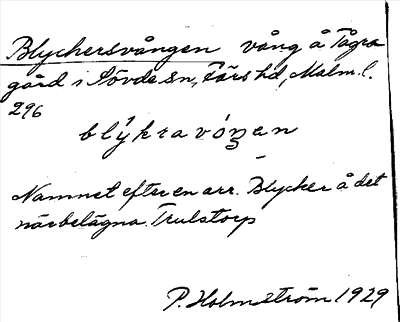 Blyckersvången vång å Tågra
gård i Sövde sn, Färs hd, Malm. l.
296
blýkravóŋen
Namnet efter en arr. Blycker å det
närbelägna Trulstorp
P. Holmström 1929